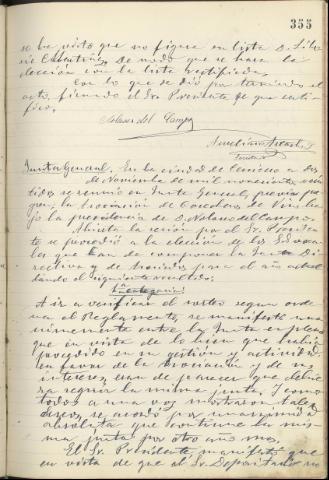 355
se ha visto que no figura en lista D. Silve-
rio Martínez, De modo que se hace la
elección con la lista rectificada.
Con lo que se dió por terminado el
acto, firmando el Sr. Presidente de que certi-
fico.
Nolasco del Campo
Aureliano
Junta General. En la ciudad de Cenicero a dos
de Noviembre de mil novecientos
se reunió en Junta General, previas
la Asociación de Cosecheros de Vino ba-
jo la presidencia de D. Nolasco del Campo.
Abierta la sesión por el Sr. Presiden-
te se procedió a la elección de los
los que han de componer la Junta Di-
rectiva y de para el año actual
dando el siguiente resultado:
A ir a verificar el sorteo segun orde-
na el Reglamento, se manifestó una-
nimemente entre la Junta en pleno
que en vista de lo bien que había
procedido en su gestión y actividad
en favor de la asociación y de sus
intereses, eran de parecer que debía
seguir la misma junta. Y como
todos a una voz mostraron tales
deseos, se acordó por unanimidad
absoluta que continue la mis-
ma junta por otro año mas.
El Sr. Presidente, manifestó que
en vista de que el Sr. Depositario no